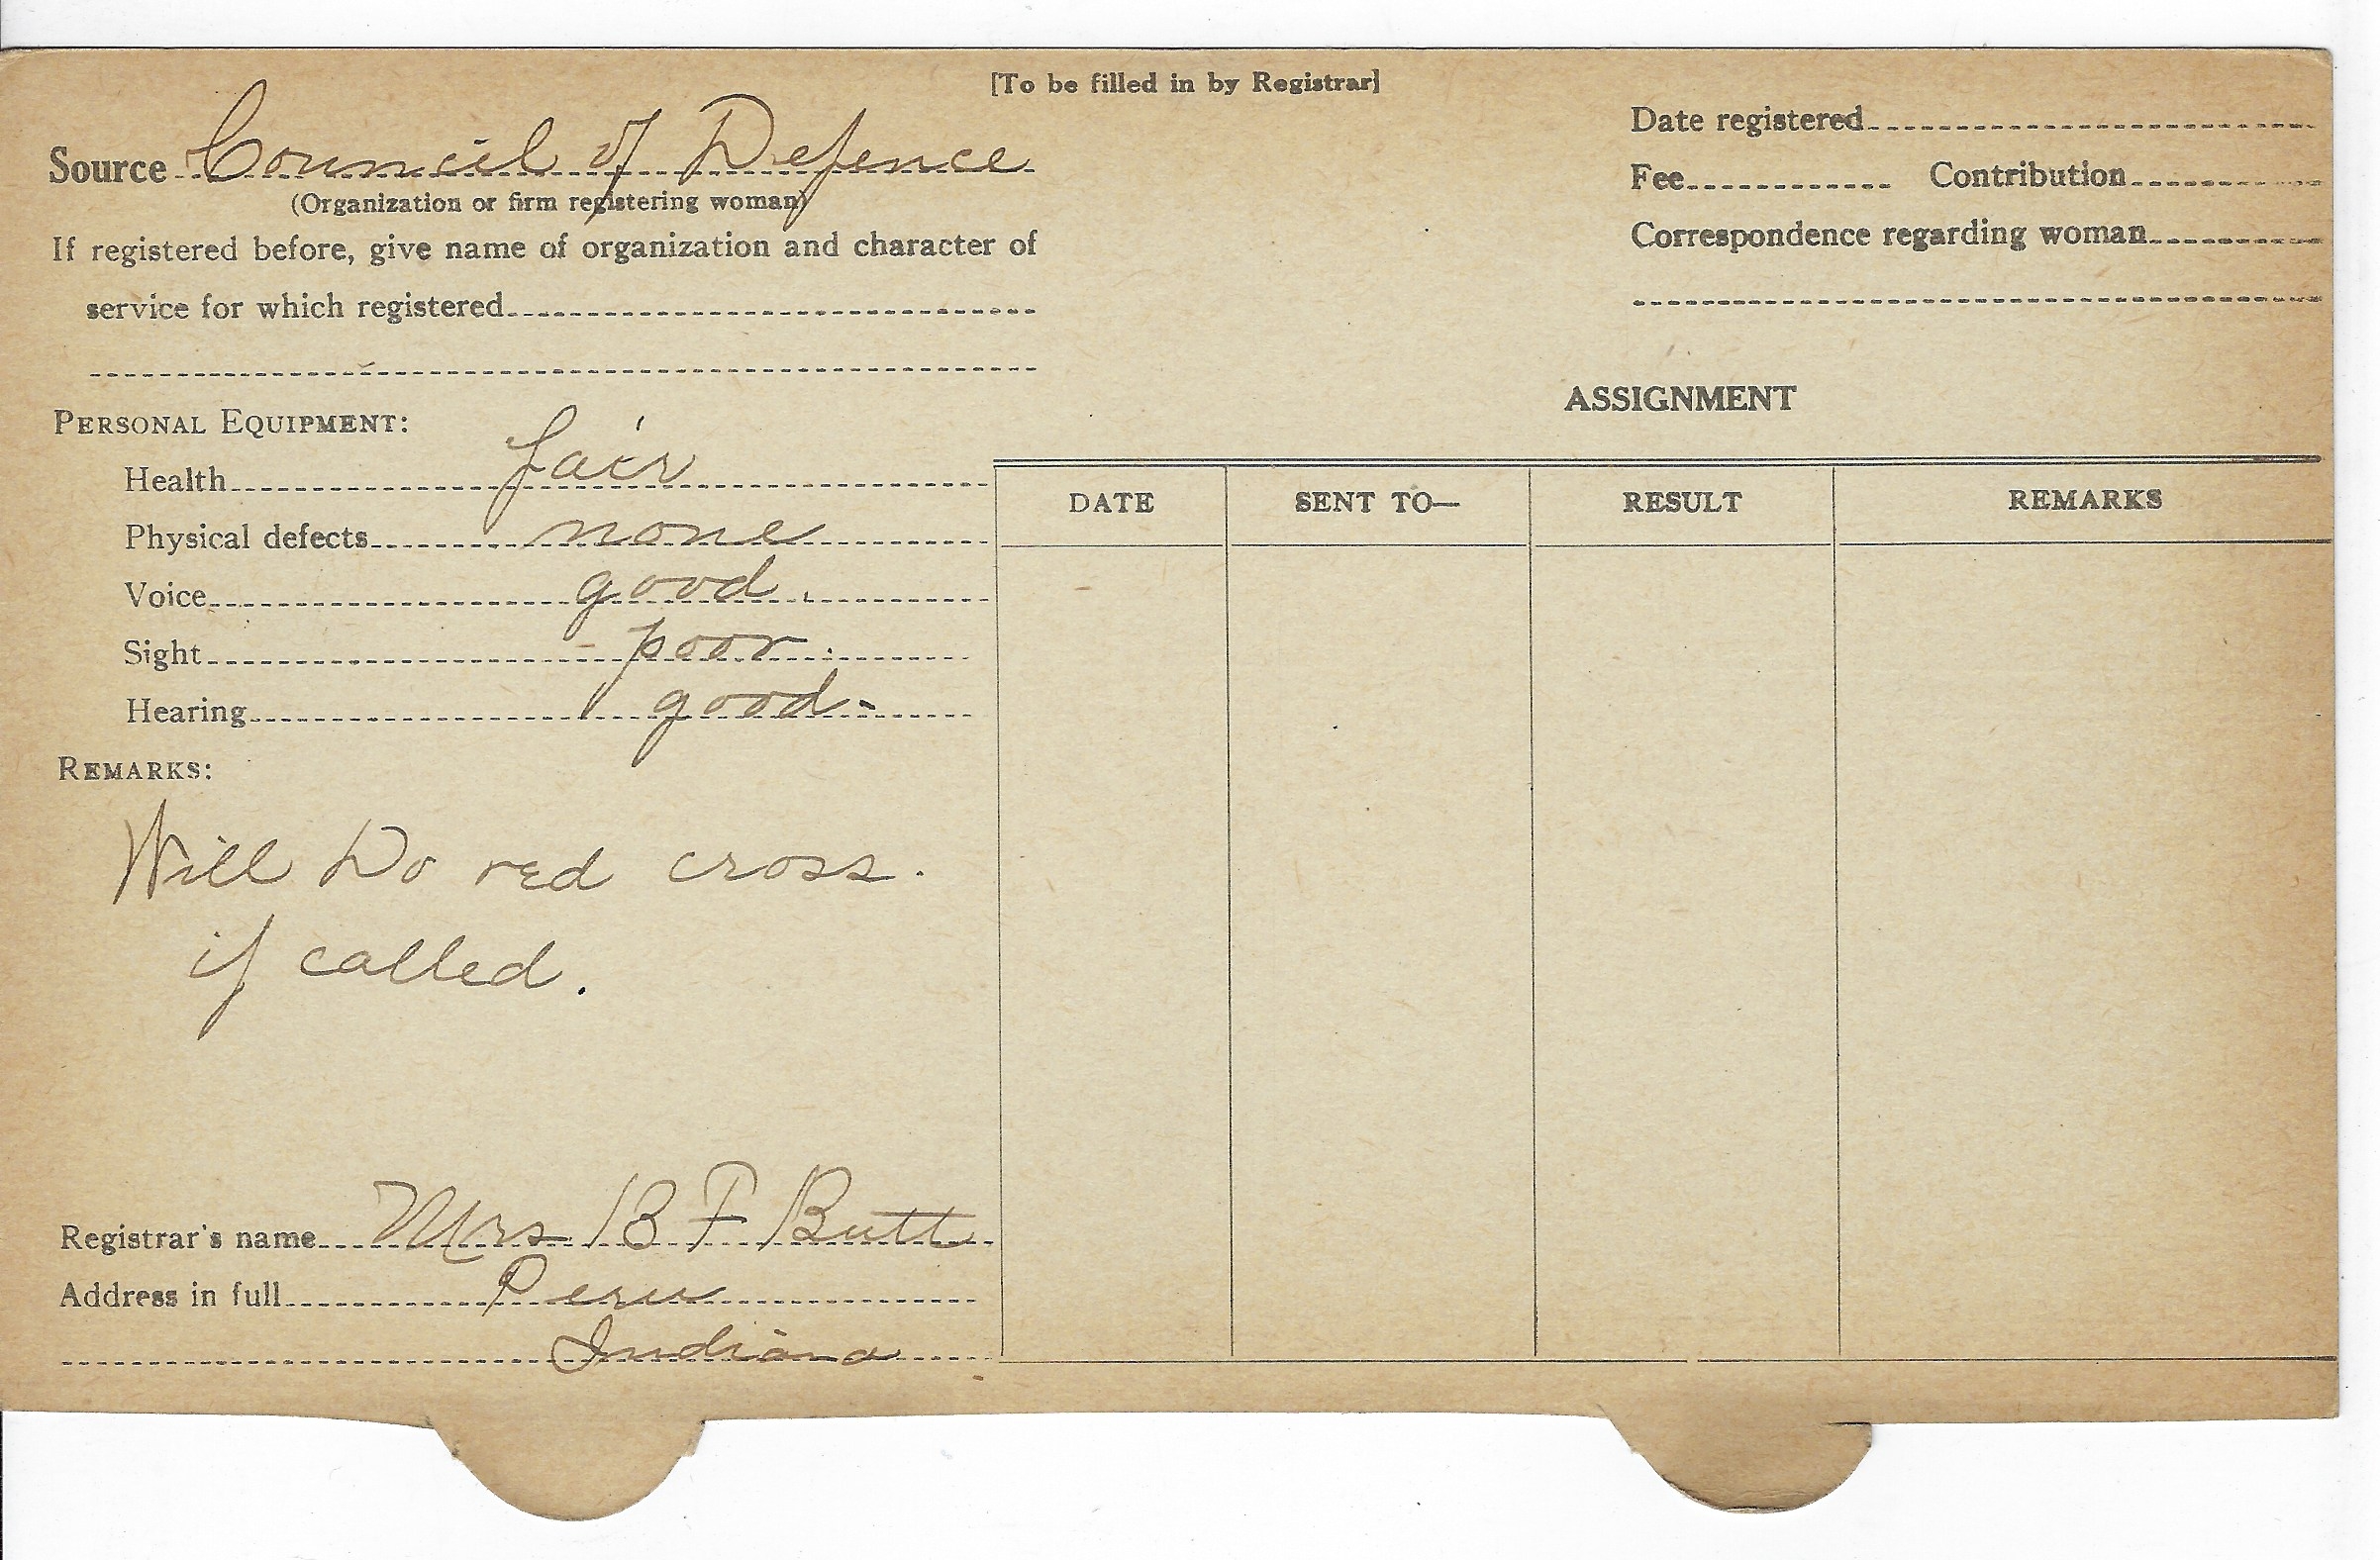 [To be filled in by Registrar]
Source Council of Defence
(Organization or firm registering woman)
If registered before, give name of organization and character of
service for which registered
Personal Equipment:
Health fair
Physical defects none
Voice good.
Sight poor.
Hearing good-
Remarks:
Will Do red cross.
if called.
Registrar's name Mrs B F Butt
Address in full Peru
Indiana
Date registered
Fee Contribution
Correspondence regarding woman
ASSIGNMENT
DATE SENT TO— RESULT REMARKS